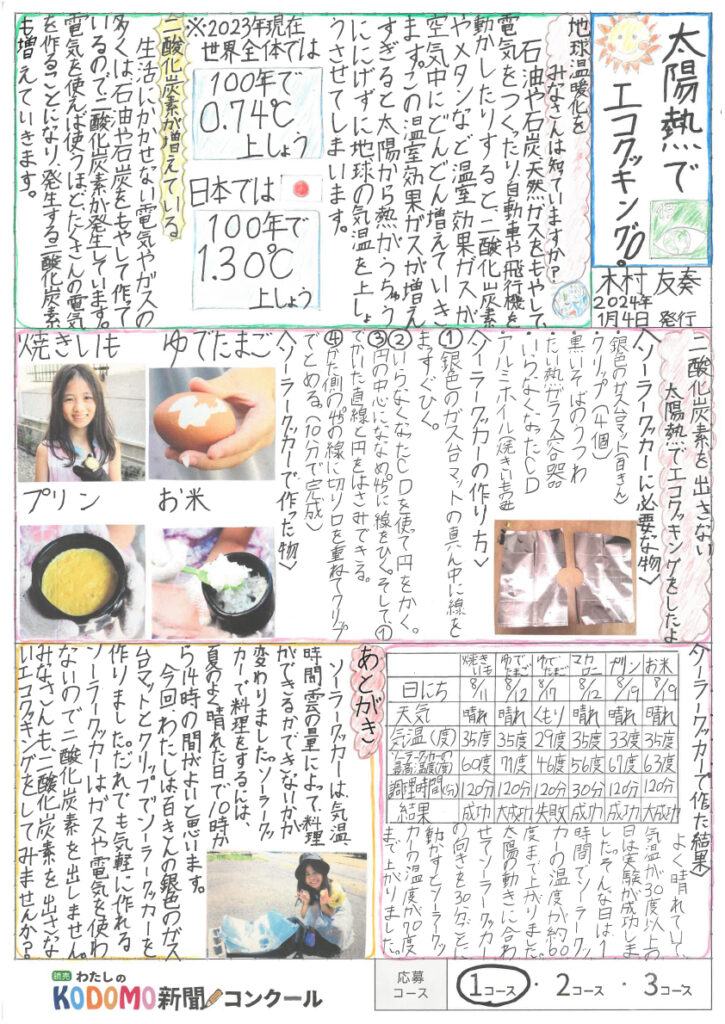 太陽熱で
エコクッキング。
木村 友奏
2024年
1月4日 発行
地球温暖化を
みなさんは知っていますか？
石油や石炭、天然ガスをもやして、
電気をつくったり、自動車や飛行機を
動かしたりすると二酸化炭素
やメタンなど温室効果ガスが
空気中にどんどん増えていき
ます。この温室効果ガスが増え
すぎると太陽から熱がうちゅう
ににげずに地球の気温を上しょ
うさせてしまいます。
※2023年現在
世界全体では
100年で
0.74℃
上しょう
日本では
100年で
1.30℃
上しょう
二酸化炭素が増えている。
生活にかかせない電気やガスの
多くは石油や石炭をもやして作って
いるので、二酸化炭素が発生しています。
電気を使えば使うほどたくさんの電気
を作ることになり、発生する二酸化炭素
も増えていきます。
二酸化炭素を出さない
太陽熱でエコクッキングをしたよ
〈ソーラークッカーに必要な物〉
銀色のガス台マット(百きん)
クリップ(4個)
黒いそばのうつわ
たい熱ガラス容器
いらなくなったCD
アルミホイル(焼きいも
〈ソーラークッカーの作り方〉
①銀色のガス台マットの真ん中に線を
ますぐひく。
②いらなくなったCDを使って円をかく。
③円の中心にななめ45°に線をひく。そして、①
でかいた直線と円をはさみできる。
④かた側の45°の線に切り口を重ねてクリップ
でとめる。(10分で完成)
〈ソーラークッカーで作った物〉
ゆでたまご
焼きいも
お米
プリン
〈ソーラークッカーで作た結果〉
焼きいも ゆでたまご ゆでたまご マカロニ プリン お米
日にち 8/11 8/12 8/17 8/12 8/19 8/19
天気 晴れ 晴れ くもり 晴れ 晴れ 晴れ
気温(度) 35度 35度 29度 35度 33度 35度
ソーラークッカーの最高温度(度) 60度 71度 46度 56度 67度 63度
調理時間(分) 120分 120分 120分 30分 120分 120分
結果 成功 大成功 失敗 成功 成功 大成功
よく晴れていて、
気温が30度以上の
日は実験が成功しま
した。そんな日は1
時間でソーラークッ
カーの温度が約60
度まで上がりました。
太陽の動きに合わ
せてソーラークッカー
の向きを30分ごとに
動かすとソーラークッ
カーの温度が70度
まで上がりました。
あとがき
ソーラークッカーは、気温、
時間、雲の量によって、料理
ができるかできないかが
変わりました。ソーラークッ
カーで料理をするんは、
夏のよく晴れた日で10時か
ら14時の間がよいと思います。
今回、わたしは百きんの銀色のガス
台マットとクリップでソーラークッカーを
作りました。だれでも気軽に作れる
ソーラークッカーはガスや電気を使わ
ないので二酸化炭素を出しません。
みなさんも、二酸化炭素を出さな
いエコクッキングをしてみませんか？
読売 わたしの
KODOMO新聞コンクール
応募
コース
1コース・2コース・3コース